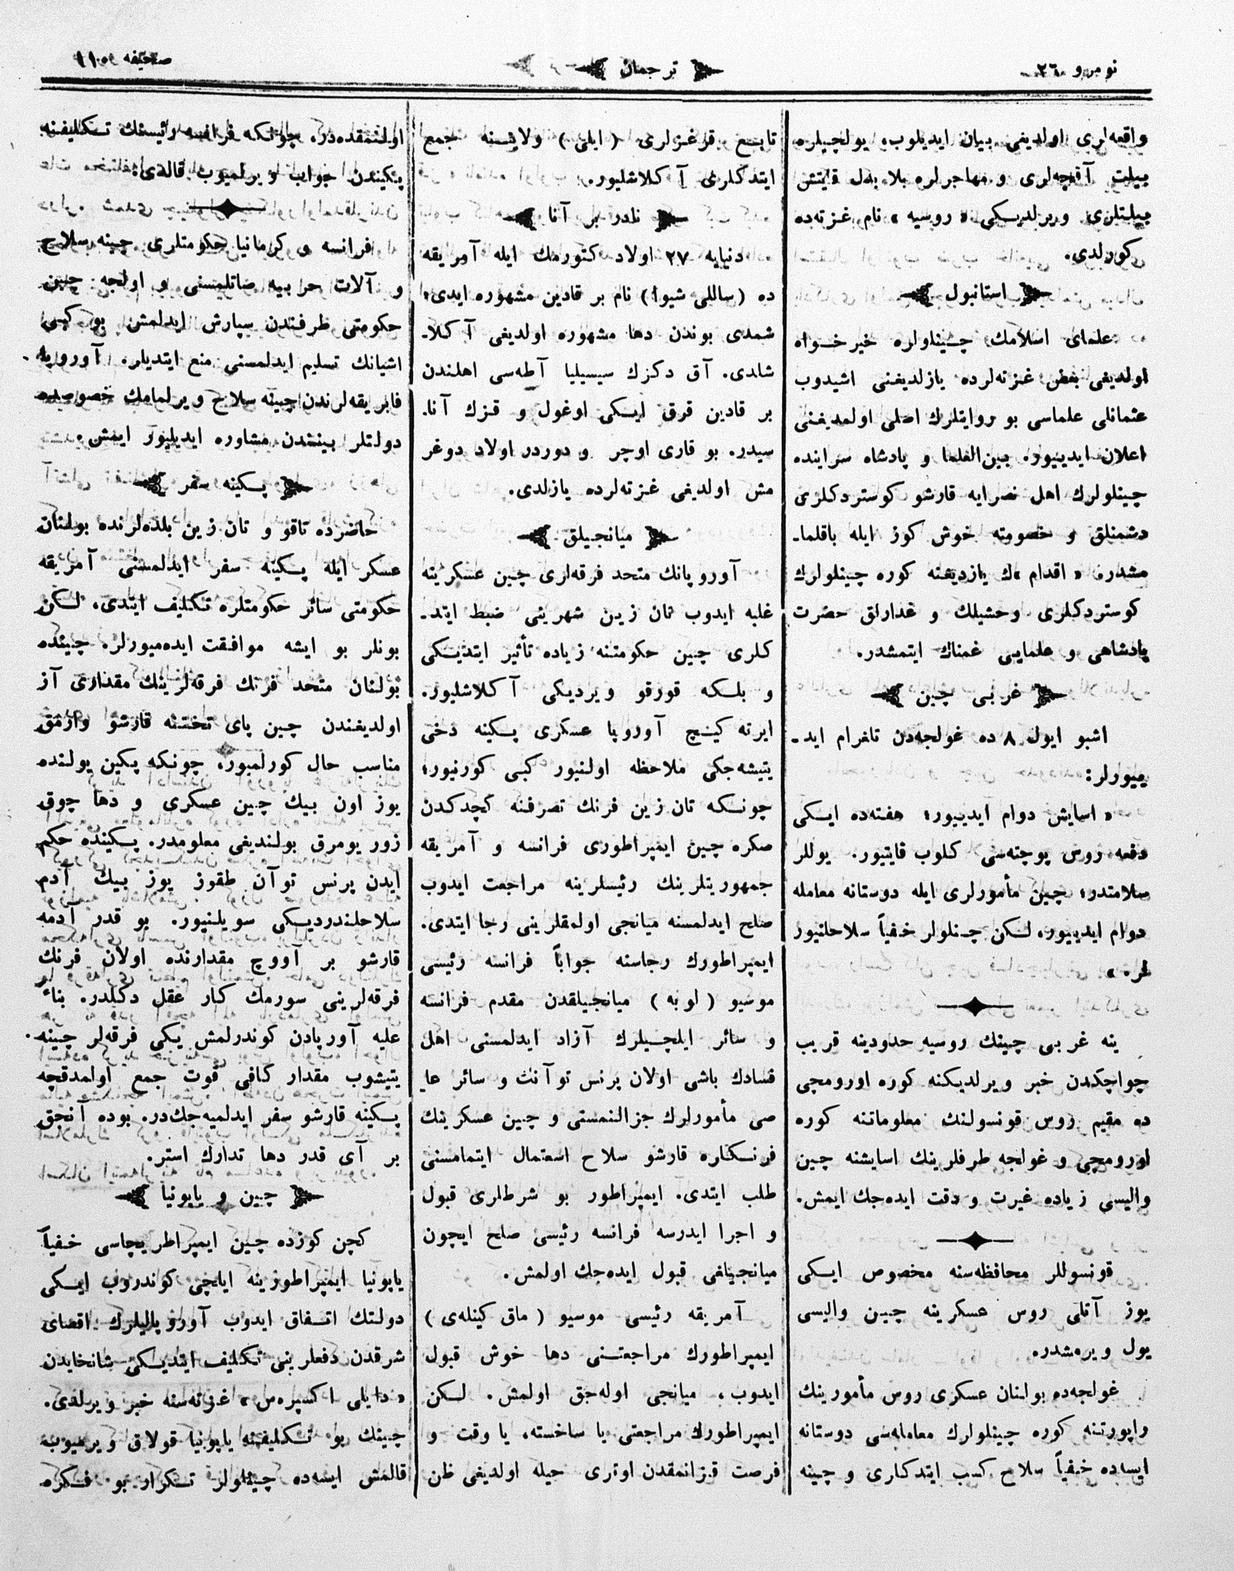 نومرو ٢٦
ترجمان
صحیفه ١١٠
واقعه‌لری اولدیغی بیان ایدیلوب، یولجیلره
بیلت آقچه‌لری و مهاجرلره بلا بدل قایتش
بیلتلری ویرلدیکی «روسیه» نام غزته‌ده
کورلدی.
استانبول
علمای اسلامك، چینلولره خیرخواه
اولدیغی بعض غزته‌لرده یازلدیغنی اشیدوب
عثمانلی علماسی بو روایتلرك اصلی اولمدیغنی
اعلان ایدییور. بین‌العلما و پادشاه سراینده
چینلولرك اهل نصرایه قارشو کوستردکلری
دشمنلق و خصومته خوش کوز ایله باقلما-
مشدر. «اقدام»ك یازدیغنه کوره چینلولرك
کوستردکلری وحشیلك و غدارلق حضرت
پادشاهی و علمایی غمناك ایتمشدر.
غربی چین
اشبو ایول ٨ ده غولجه‌دن تلغرام اید-
ییورلر:
«اسایش دوام ایدییور؛ هفته‌ده ایکی
دفعه روس پوچته‌سی کلوب قایتیور. یوللر
سلامتدر؛ چین مأمورلری ایله دوستانه معامله
دوام ایدییور، لکن چنلولر خفیاً سلاحلنیور
لر.»
ینه غربی چینك روسیه حدودینه قریب
چواچکدن خبر ویرلدیکنه کوره اورومچی
ده مقیم روس قونسولنك معلوماتنه کوره
اورومچی و غولجه طرفلرینك اسایشنه چین
والیسی زیاده غیرت و دقت ایده‌جك ایمش.
قونسوللر محافظه‌سنه مخصوص ایکی
یوز آتلی روس عسکرینه چین والیسی
یول ویرمشدر.
غولجه‌ده بولنان عسکری روس مأمورینك
راپورتنه کوره چینلولرك معامله‌سی دوستانه
ایسه‌ده خفیاً سلاح کسب ایتدکلری و چینه
تابع قرغزلری (ایلی) ولایتنه جمع
ایتدکلری آکلاشلیور.
نادر بر آنا
دنیایه ٢٧ اولاد کتورمك ایله آمریقه
ده (ساللی شیوا) نام بر قادین مشهوره ایدی؛
شمدی بوندن دها مشهوره اولدیغی آکلا-
شلدی. آق دکزك سیسیلیا آطه‌سی اهلندن
بر قادین قرق ایکی اوغول و قزك آنا-
سیدر. بو قاری اوچر و دوردر اولاد دوغر
مش اولدیغی غزته‌لرده یازلدی.
میانجیلق
آوروپانك متحد فرقه‌لری چین عسکرینه
غلبه ایدوب تان زین شهرینی ضبط ایتد-
کلری چین حکومتنه زیاده تأثیر ایتدیکی
و بلکه قورقو ویردیکی آکلاشلیور.
ایرته کیچ آوروپا عسکری پکینه دخی
یتیشه‌جکی ملاحظه اولنیور کبی کورنیور،
چونکه تان زین فرنك تصرفنه کچدکدن
صکره چین ایمپراطوری فرانسه و آمریقه
جمهوریتلرینك رئیسلرینه مراجعت ایدوب
صلح ایدلمسنه میانجی اولمقلرینی رجا ایتدی.
ایمپراطورك رجاسنه جواباً فرانسه رئیسی
موسیو (لوبه) میانجیلقدن مقدم فرانسه
و سائر ایلچیلرك آزاد ایدلمسنی اهل
فسادك باشی اولان پرنس توآنك و سائر عا-
صی مأمورلرك جزالنمسنی و چین عسکرینك
فرنکلره قارشو سلاح استعمال ایتمامسنی
طلب ایتدی. ایمپراطور بو شرطلری قبول
و اجرا ایدرسه فرانسه رئیسی صلح ایچون
میانجیلغی قبول ایده‌جك اولمش.
آمریقه رئیسی موسیو (ماق کینله‌ی)
ایمپراطورك مراجعتنی دها خوش قبول
ایدوب، میانجی اوله‌جق اولمش. لکن
ایمپراطورك مراجعتی یا ساخته، یا وقت و
فرصت قزانمقدن اوتری حیله اولدیغی ظن
اولنمقده‌در، چونکه فرانسه رئیسنك تکلیفنه
پکیندن جواب ویرلمیوب قالدی.
فرانسه و کرمانیا حکومتلری چینه سلاح
و آلات حربیه صاتلمسنی و اولجه چین
حکومتی طرفندن سپارش ایدلمش بو کبی
اشیانك تسلیم ایدلمسنی منع ایتدیلر. آوروپا
فابریقه‌لرندن چینه سلاح ویرلمامك خصوصنده
دولتلر بیننده مشاوره ایدیلیور ایمش.
پکینه سفر
حاضرده تاقو و تان زین بلده‌لرنده بولنان
عسکر ایله پکینه سفر ایدلمسنی آمریقه
حکومتی سائر حکومتلره تکلیف ایتدی، لکن
بونلر بو ایشه موافقت ایده‌میورلر. چینده
بولنان متحد فرنك فرقه‌لرینك مقداری آز
اولدیغندن چین پای تختنه قارشو وارمق
مناسب حال کورلمیور، چونکه پکین یولنده
یوز اون بیك چین عسکری و دها چوق
زور یومرق بولندیغی معلومدر. پکینده حکم
ایدن پرنس توآن طقوز یوز بیك آدم
سلاحلندردیکی سویلنیور. بو قدر آدمه
قارشو بر آووچ مقدارنده اولان فرنك
فرقه‌لرینی سورمك کار عقل دکلدر. بناءً
علیه آوروپادن کوندرلمش یکی فرقه‌لر چینه
یتیشوب مقدار کافی قوت جمع اولمدقچه
پکینه قارشو سفر ایدلمیه‌جك‌در. بوده آنجق
بر آی قدر دها تدارك استر.
چین و یاپونیا
کچن کوزده چین ایمپراطریچاسی خفیاً
یاپونیا ایمپراطورینه ایلچی کوندروب ایکی
دولتك اتفاق ایدوب آوروپالیلرك اقصای
شرقدن دفعلرینی تکلیف ایتدیکی شانخایدن
«دایلی اکسپره‌س» غزته‌سنه خبر ویرلدی.
چینك بو تکلیفنه یاپونیا قولاق ویرمیوب
قالمش ایسه‌ده چینلولر تکرار بو فکره